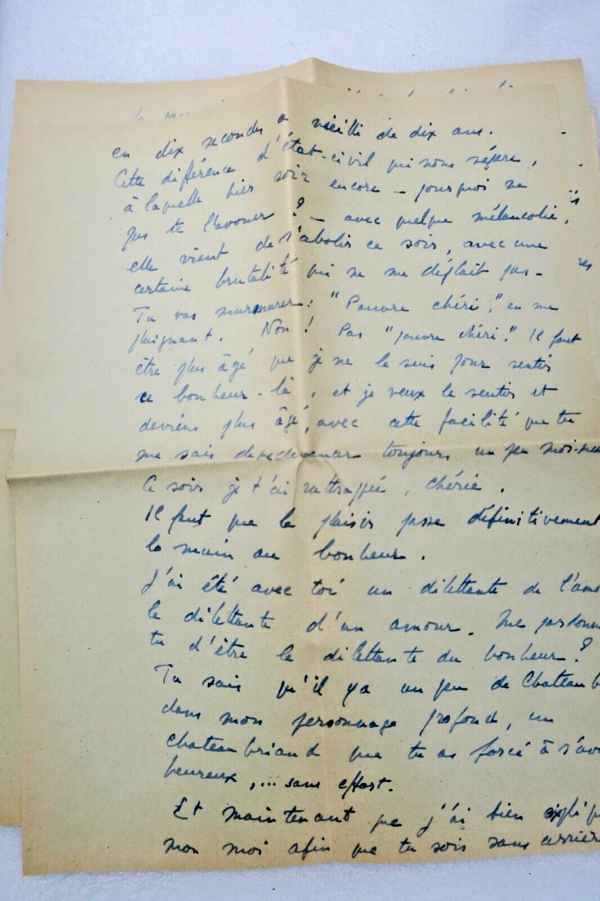 en dix secondes a vieilli de dix ans.
Cette différence d'état-civil qui nous sépare,
à laquelle hier soir encore – pourquoi ne
pas te l'avouer ? – avec quelque mélancolie,
elle vient de s'abolir ce soir, avec une
certaine brutalité qui ne me déplait pas –
Tu vas murmurer : "Pauvre chéri", en me
plaignant. Non ! Pas "pauvre chéri". Il faut
être plus âgé que je ne le suis pour sentir
ce bonheur-là, et je veux le sentir et
deviens plus âgé, avec cette facilité que tu
me sais de redevenir toujours un peu moi-
Ce soir je t'ai rattrappée, chérie.
Il faut que le plaisir passe définitivement
la main au bonheur.
J'ai été avec toi un dilettante de l'amo
le dilettante d'un amour. Me pardonn
tu d'être le dilettante du bonheur ?
Tu sais qu'il y a un peu de Chateaub
dans mon personnage profond, un
chateaubriand que tu as forcé à s'avo
heureux, ... sans effort.
Et maintenant que j'ai bien expliqu
mon moi afin que tu sois sans arrièr